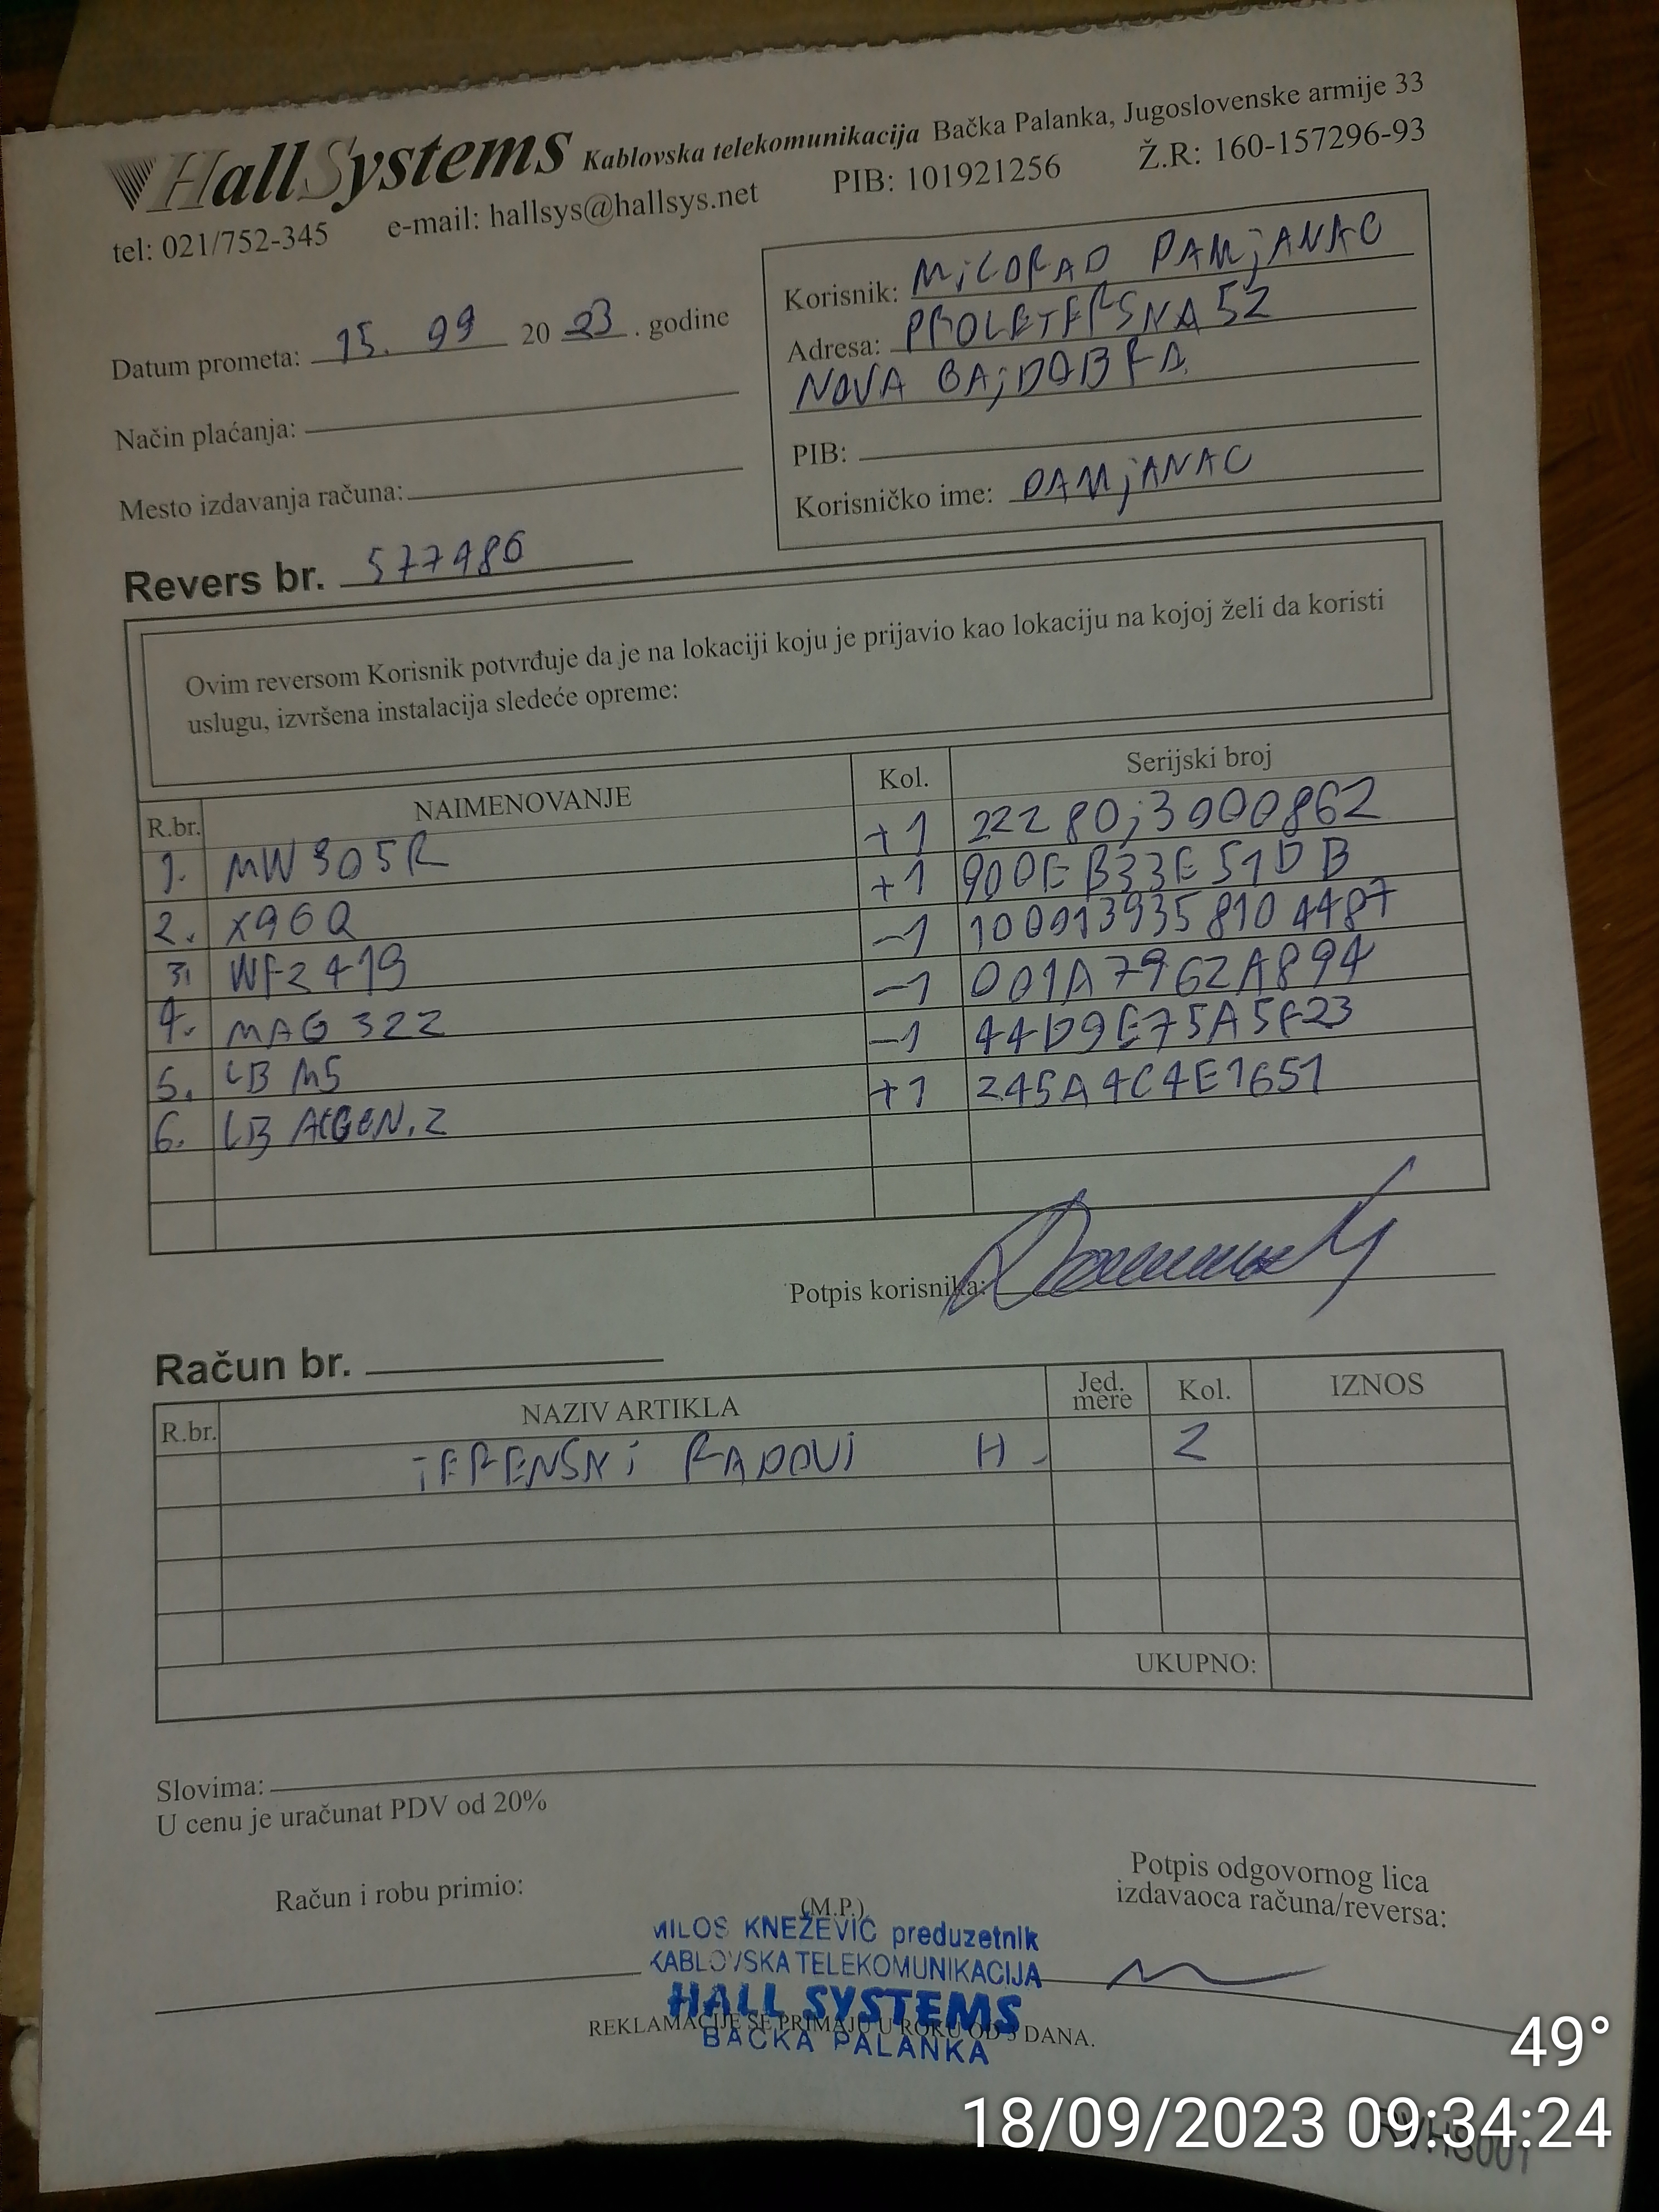 HallSystems Kablovska telekomunikacija Bačka Palanka, Jugoslovenske armije 33
tel: 021/752-345 e-mail: hallsys@hallsys.net PIB: 101921256 Ž.R: 160-157296-93
Korisnik: MiLORAD DAMjANAC
Datum prometa: 15. 09 20 23 . godine
Adresa: PROLETERSKA 52
NOVA GAjDOBRA
Način plaćanja:
PIB:
Mesto izdavanja računa:
Korisničko ime: DAMjANAC
Revers br. 577986
Ovim reversom Korisnik potvrđuje da je na lokaciji koju je prijavio kao lokaciju na kojoj želi da koristi
uslugu, izvršena instalacija sledeće opreme:
R.br. NAIMENOVANJE Kol. Serijski broj
1. MW305R +1 22280j3000862
2. X96Q +1 900EB33E51DB
3. WF2419 -1 1000139358104487
4. MAG 322 -1 001A7962A894
5. LB M5 -1 44D9E75A5F23
6. LB ACGEN.2 +1 245A4C4E1651
Potpis korisnika:
Račun br.
R.br. NAZIV ARTIKLA Jed. mere Kol. IZNOS
TERENSKi RADOVi H - 2
UKUPNO:
Slovima:
U cenu je uračunat PDV od 20%
Račun i robu primio:
(M.P.)
Potpis odgovornog lica
izdavaoca računa/reversa:
MILOŠ KNEŽEVIĆ preduzetnik
KABLOVSKA TELEKOMUNIKACIJA
HALL SYSTEMS
REKLAMACIJE SE PRIMAJU U ROKU OD 3 DANA.
BAČKA PALANKA
49°
18/09/2023 09:34:24